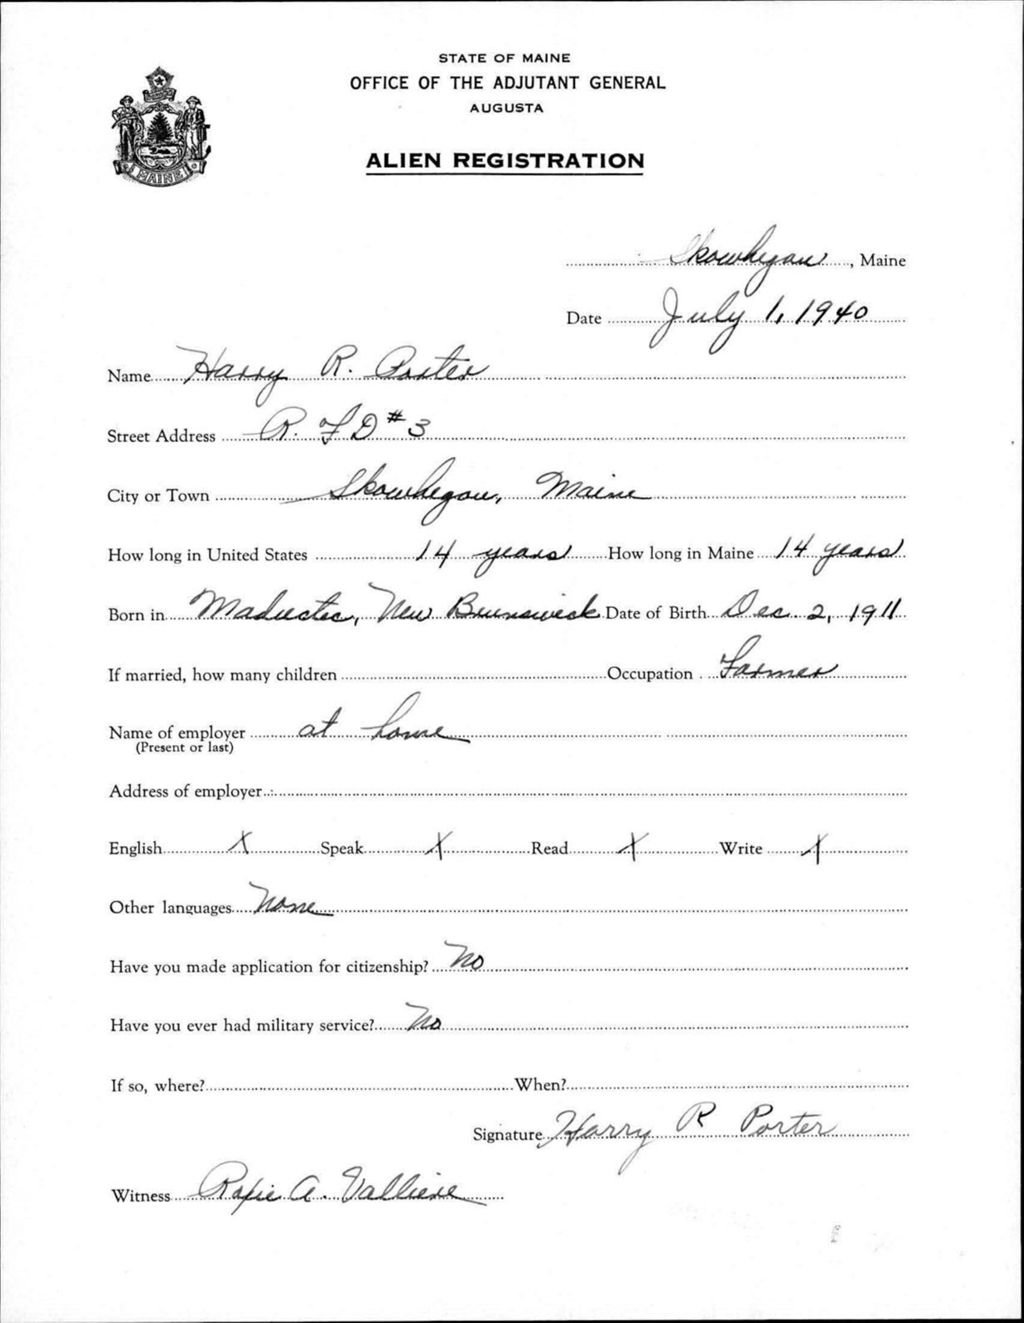 STATE OF MAINE
OFFICE OF THE ADJUTANT GENERAL
AUGUSTA
ALIEN REGISTRATION
MAINE
Skowhegan, Maine
Date July 1, 1940
Name Harry R. Porter
Street Address R. F D #3
City or Town Skowhegan, Maine
How long in United States 14 years How long in Maine 14 years
Born in Maductic, New Brunswick Date of Birth Dec. 2, 1911
If married, how many children Occupation Farmer
Name of employer at home
(Present or last)
Address of employer
English X Speak X Read X Write X
Other languages None
Have you made application for citizenship? No
Have you ever had military service? No
If so, where? When?
Signature Harry R Porter
Witness Roxie A. Valliere